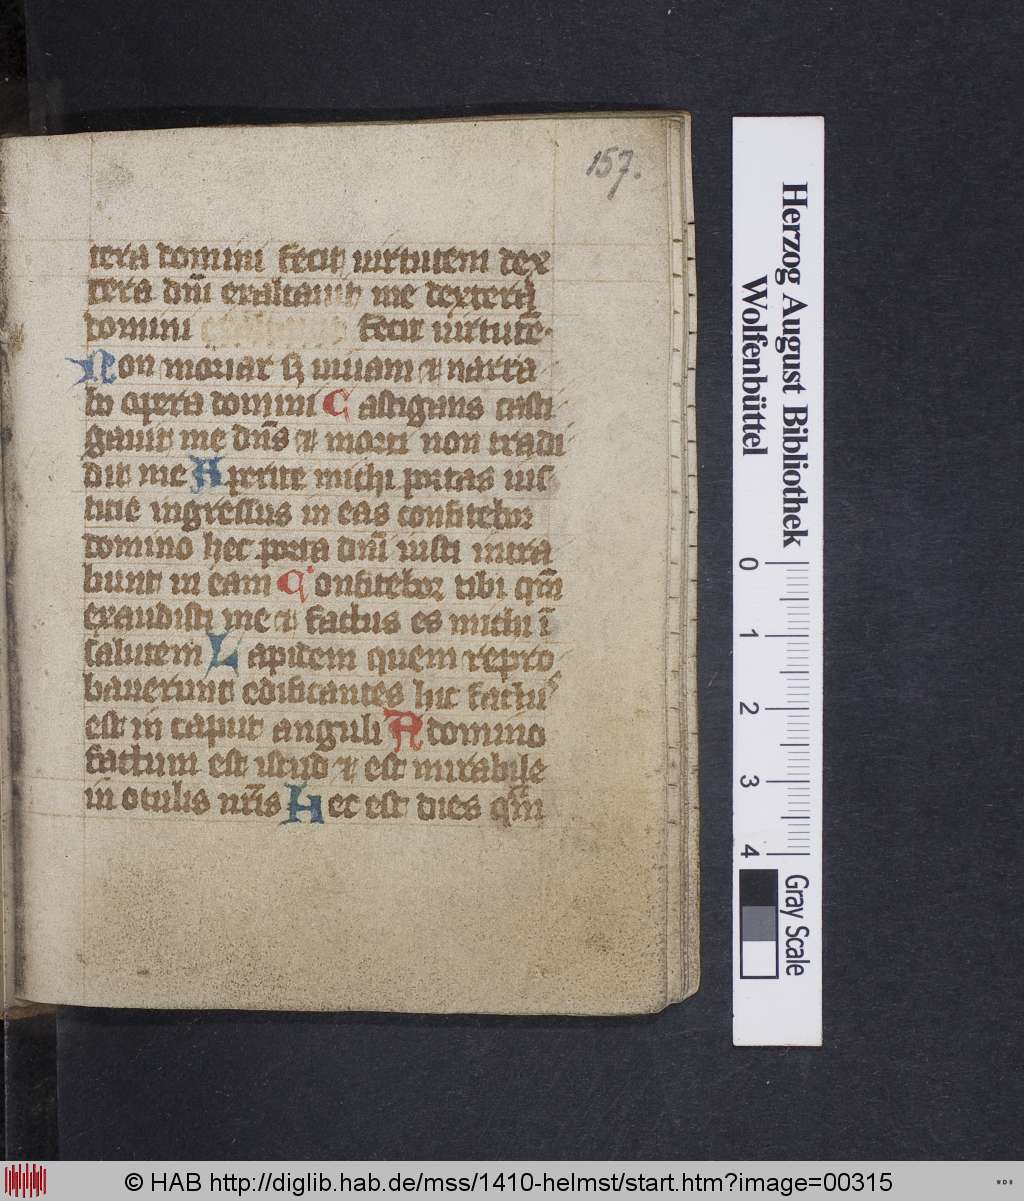 157.
tera domini fecit uirtutem dex
tera dn̄i exaltauit me dextera
domini fecit uirtutē.
Non moriar sꝫ uiuam et narra
bo opera domini Castigans casti
gauit me dn̄s et morti non tradi
dit me Aperite michi portas ius
ticie ingressus in eas confitebor
domino hec porta dn̄i iusti intra
bunt in eam Confitebor tibi qm̄
exaudisti me et factus es michi ī
salutem Lapidem quem repro
bauerunt edificantes hic factus
est in caput anguli A domino
factum est istud et est mirabile
in oculis nr̄is Hec est dies qm̄
Herzog August Bibliothek
Wolfenbüttel
0 1 2 3 4
Gray Scale
© HAB http://diglib.hab.de/mss/1410-helmst/start.htm?image=00315